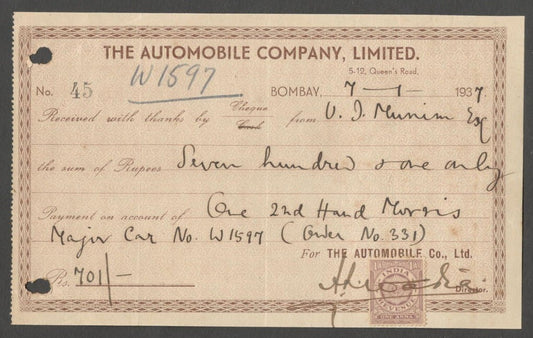 THE AUTOMOBILE COMPANY, LIMITED.
5-12, Queen's Road,
W1597
No. 45 BOMBAY, 7-1- 1937.
Received with thanks by Cheque Cash from V. J. Munim Esq
the sum of Rupees Seven hundred & one only
Payment on account of One 2nd Hand Morris
Major Car No. W1597 (Order No. 331)
For THE AUTOMOBILE Co., Ltd.
Rs. 701/-
INDIA
REVENUE
ONE ANNA
Director.